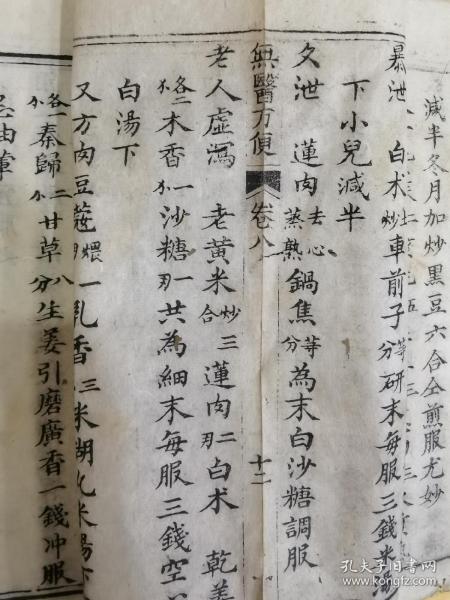 減半冬月加炒黑豆六合全煎服尤妙
暴泄 白术炒車前子等分研末每服三錢米
下小兒減半
久泄 蓮肉去心蒸熟鍋焦等分為末白沙糖調服
無醫方便 卷八 十二
老人虛瀉 老黃米炒三合蓮肉二刄白术 乾姜
各二木香一沙糖一刄共為細末每服三錢空
白湯下
又方肉荳蔻煨一刄乳香三米湖丸米湯下
各一秦歸二甘草八分生姜引磨廣香一錢冲服
孔夫子旧书网